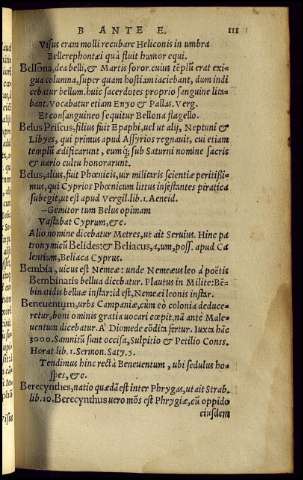 B ANTE E. 111
Visus eram molli recubare Heliconis in umbra
Bellerephontæi quà fluit humor equi.
Bellona, dea belli, & Martis soror. cuius tẽplũ erat exi-
gua columna, super quam hastam iaciebant, dum indi
cebatur bellum. huic sacerdotes proprio sanguine lita-
bant. Vocabatur etiam Enyo & Pallas. Verg.
Et consanguineo sequitur Bellona flagello.
Belus Priscus, filius fuit Epaphi, vel ut alij, Neptuni &
Libyes, qui primus apud Assyrios regnauit, cui etiam
templũ ædificarunt, eumq; sub Saturni nomine sacris
& uario cultu honorarunt.
Belus, alius, fuit Phœnicis, uir militaris scientiæ peritissi-
mus, qui Cyprios Phœnicum littus infestantes piratica
subegit, ut est apud Vergil. lib. 1. Aeneid.
--Genitor tum Belus opimam
Vastabat Cyprum, &c.
Alio nomine dicebatur Metres, ut ait Seruius. Hinc pa
tronymicũ Belides: & Beliacus, a, um, poss. apud Ca
lentium, Beliaca Cyprus.
Bembia, uicus est Nemeæ: unde Nemeæus leo à poëtis
Bembinatis bellua dicebatur. Plautus in Milite: Bẽ-
binatidis belluæ instar: id est, Nemeæi leonis instar.
Beneuentum, urbs Campaniæ, cum eò colonia deduce-
retur, boni ominis gratia uocari cœpit. nã ante Male-
uentum dicebatur. A' Diomede cõdita fertur. Iuxta hãc
3000. Samnitũ sunt occisa, Sulpitio & Petilio Conss.
Horat lib. 1. Sermon. Saty. 5.
Tendimus hinc rectà Beneuentum, ubi sedulus ho-
spes, &c.
Berecynthes, natio quædã est inter Phrygas, ut ait Strab.
lib. 10. Berecynthus uero mõs est Phrygiæ, cũ oppido
eiusdem